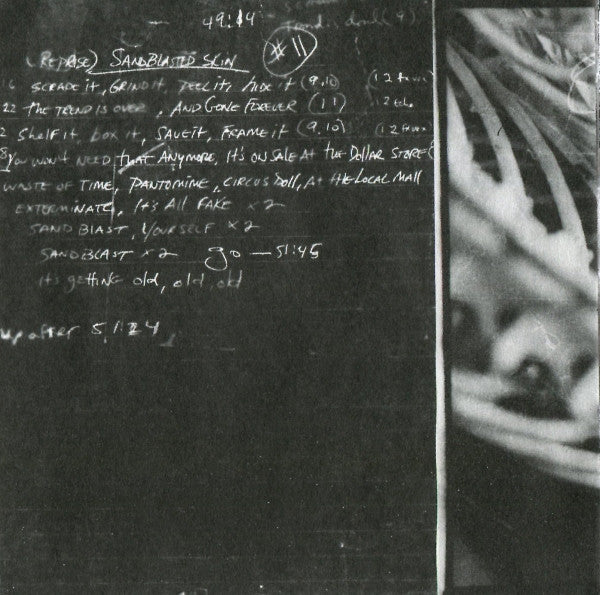 49:14
(REPRISE) SANDBLASTED SKIN #11
SCRAPE it, GRIND it, PEEL it, hide it (9,10)
22 The TREND IS OVER, AND GONE FOREVER (11)
2 Shelf it, box it, SAVE it, FRAME it (9,10)
YOU WON'T NEED that ANYMORE, It's ON SALE At the DOLLAR STORE
WASTE OF TIME, PANTOMINE, CIRCUS DOLL, At the LOCAL MALL
EXTERMINATE, It's All FAKE x 2
SAND BLAST, YOURSELF x 2
SANDBLAST x 2 go — 51:45
it's getting old, old, old
up after 51:24